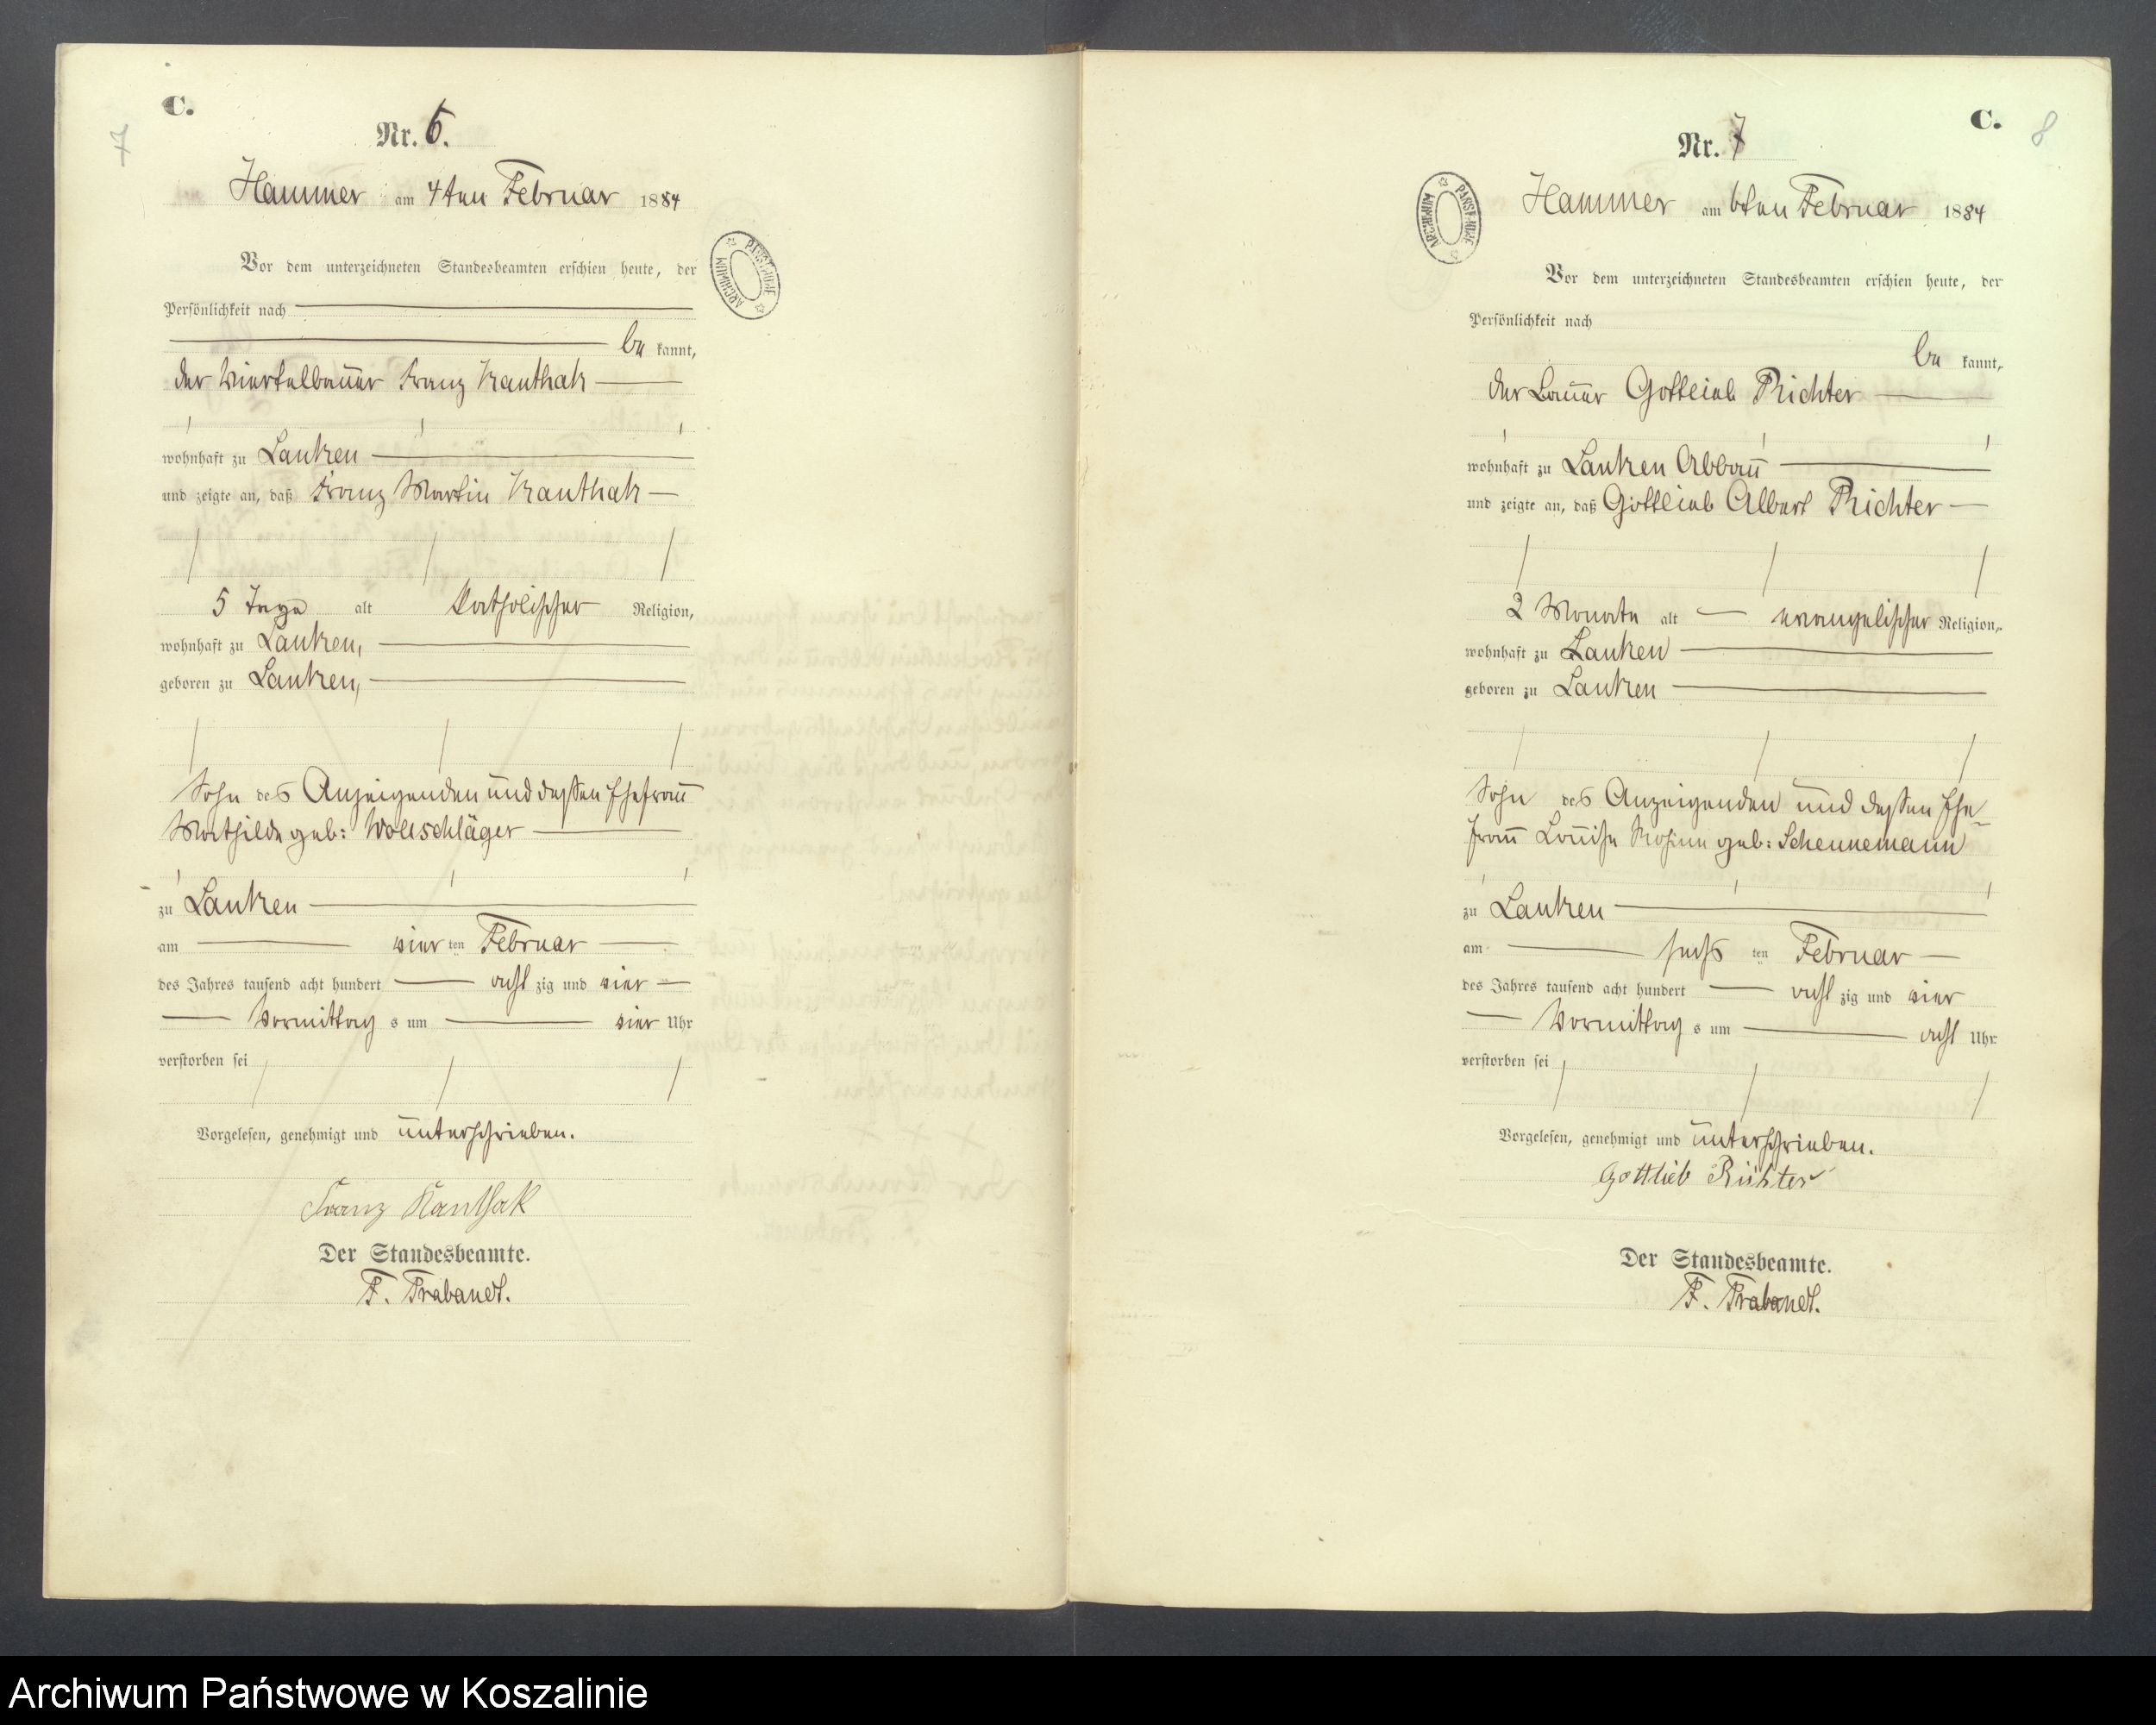 C.
7
Nr. 6.
Hammer am 4ten Februar 1884
Vor dem unterzeichneten Standesbeamten erschien heute, der
Persönlichkeit nach
be kannt,
der Viertelbauer Franz Kanthak
wohnhaft zu Lanken
und zeigte an, daß Franz Martin Kanthak
5 Tage alt katholischer Religion,
wohnhaft zu Lanken,
geboren zu Lanken,
Sohn des Anzeigenden und dessen Ehefrau
Mathilde geb: Wollschläger
zu Lanken
am vier ten Februar
des Jahres tausend acht hundert acht zig und vier
Vormittag s um vier Uhr
verstorben sei
Vorgelesen, genehmigt und unterschrieben.
Franz Kanthak
Der Standesbeamte.
F. Trabandt.
ARCHIWUM PAŃSTWOWE
C.
8
Nr. 7
Hammer am 6ten Februar 1884
Vor dem unterzeichneten Standesbeamten erschien heute, der
Persönlichkeit nach
be kannt,
der Bauer Gottlieb Richter
wohnhaft zu Lanken Abbau
und zeigte an, daß Gottlieb Albert Richter
2 Monate alt evangelischer Religion,
wohnhaft zu Lanken
geboren zu Lanken
Sohn des Anzeigenden und dessen Ehe-
frau Louise Rosine geb: Schennemann
zu Lanken
am sechs ten Februar
des Jahres tausend acht hundert acht zig und vier
Vormittag s um acht Uhr
verstorben sei
Vorgelesen, genehmigt und unterschrieben.
Gottlieb Richter
Der Standesbeamte.
F. Trabandt.
ARCHIWUM PAŃSTWOWE
Archiwum Państwowe w Koszalinie